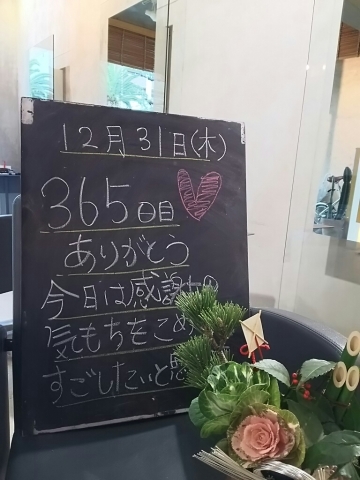 12月31日(木)
365日目
ありがとう
今日は感謝の
気もちをこめ
すごしたいと思